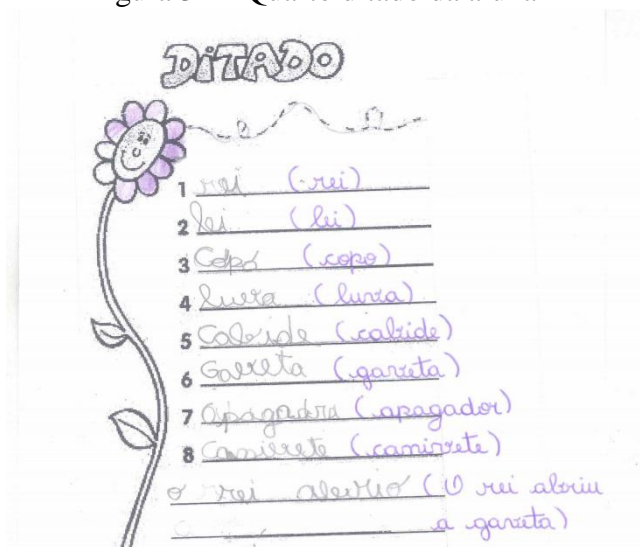 DITADO
1 rei (rei)
2 lei (lei)
3 Copo (copo)
4 (lura)
5 Cabride (cabride)
6 Garreta (gaveta)
7 apagadra (apagador)
8 (caminete)
o rei abrio (O rei abriu
a gaveta)